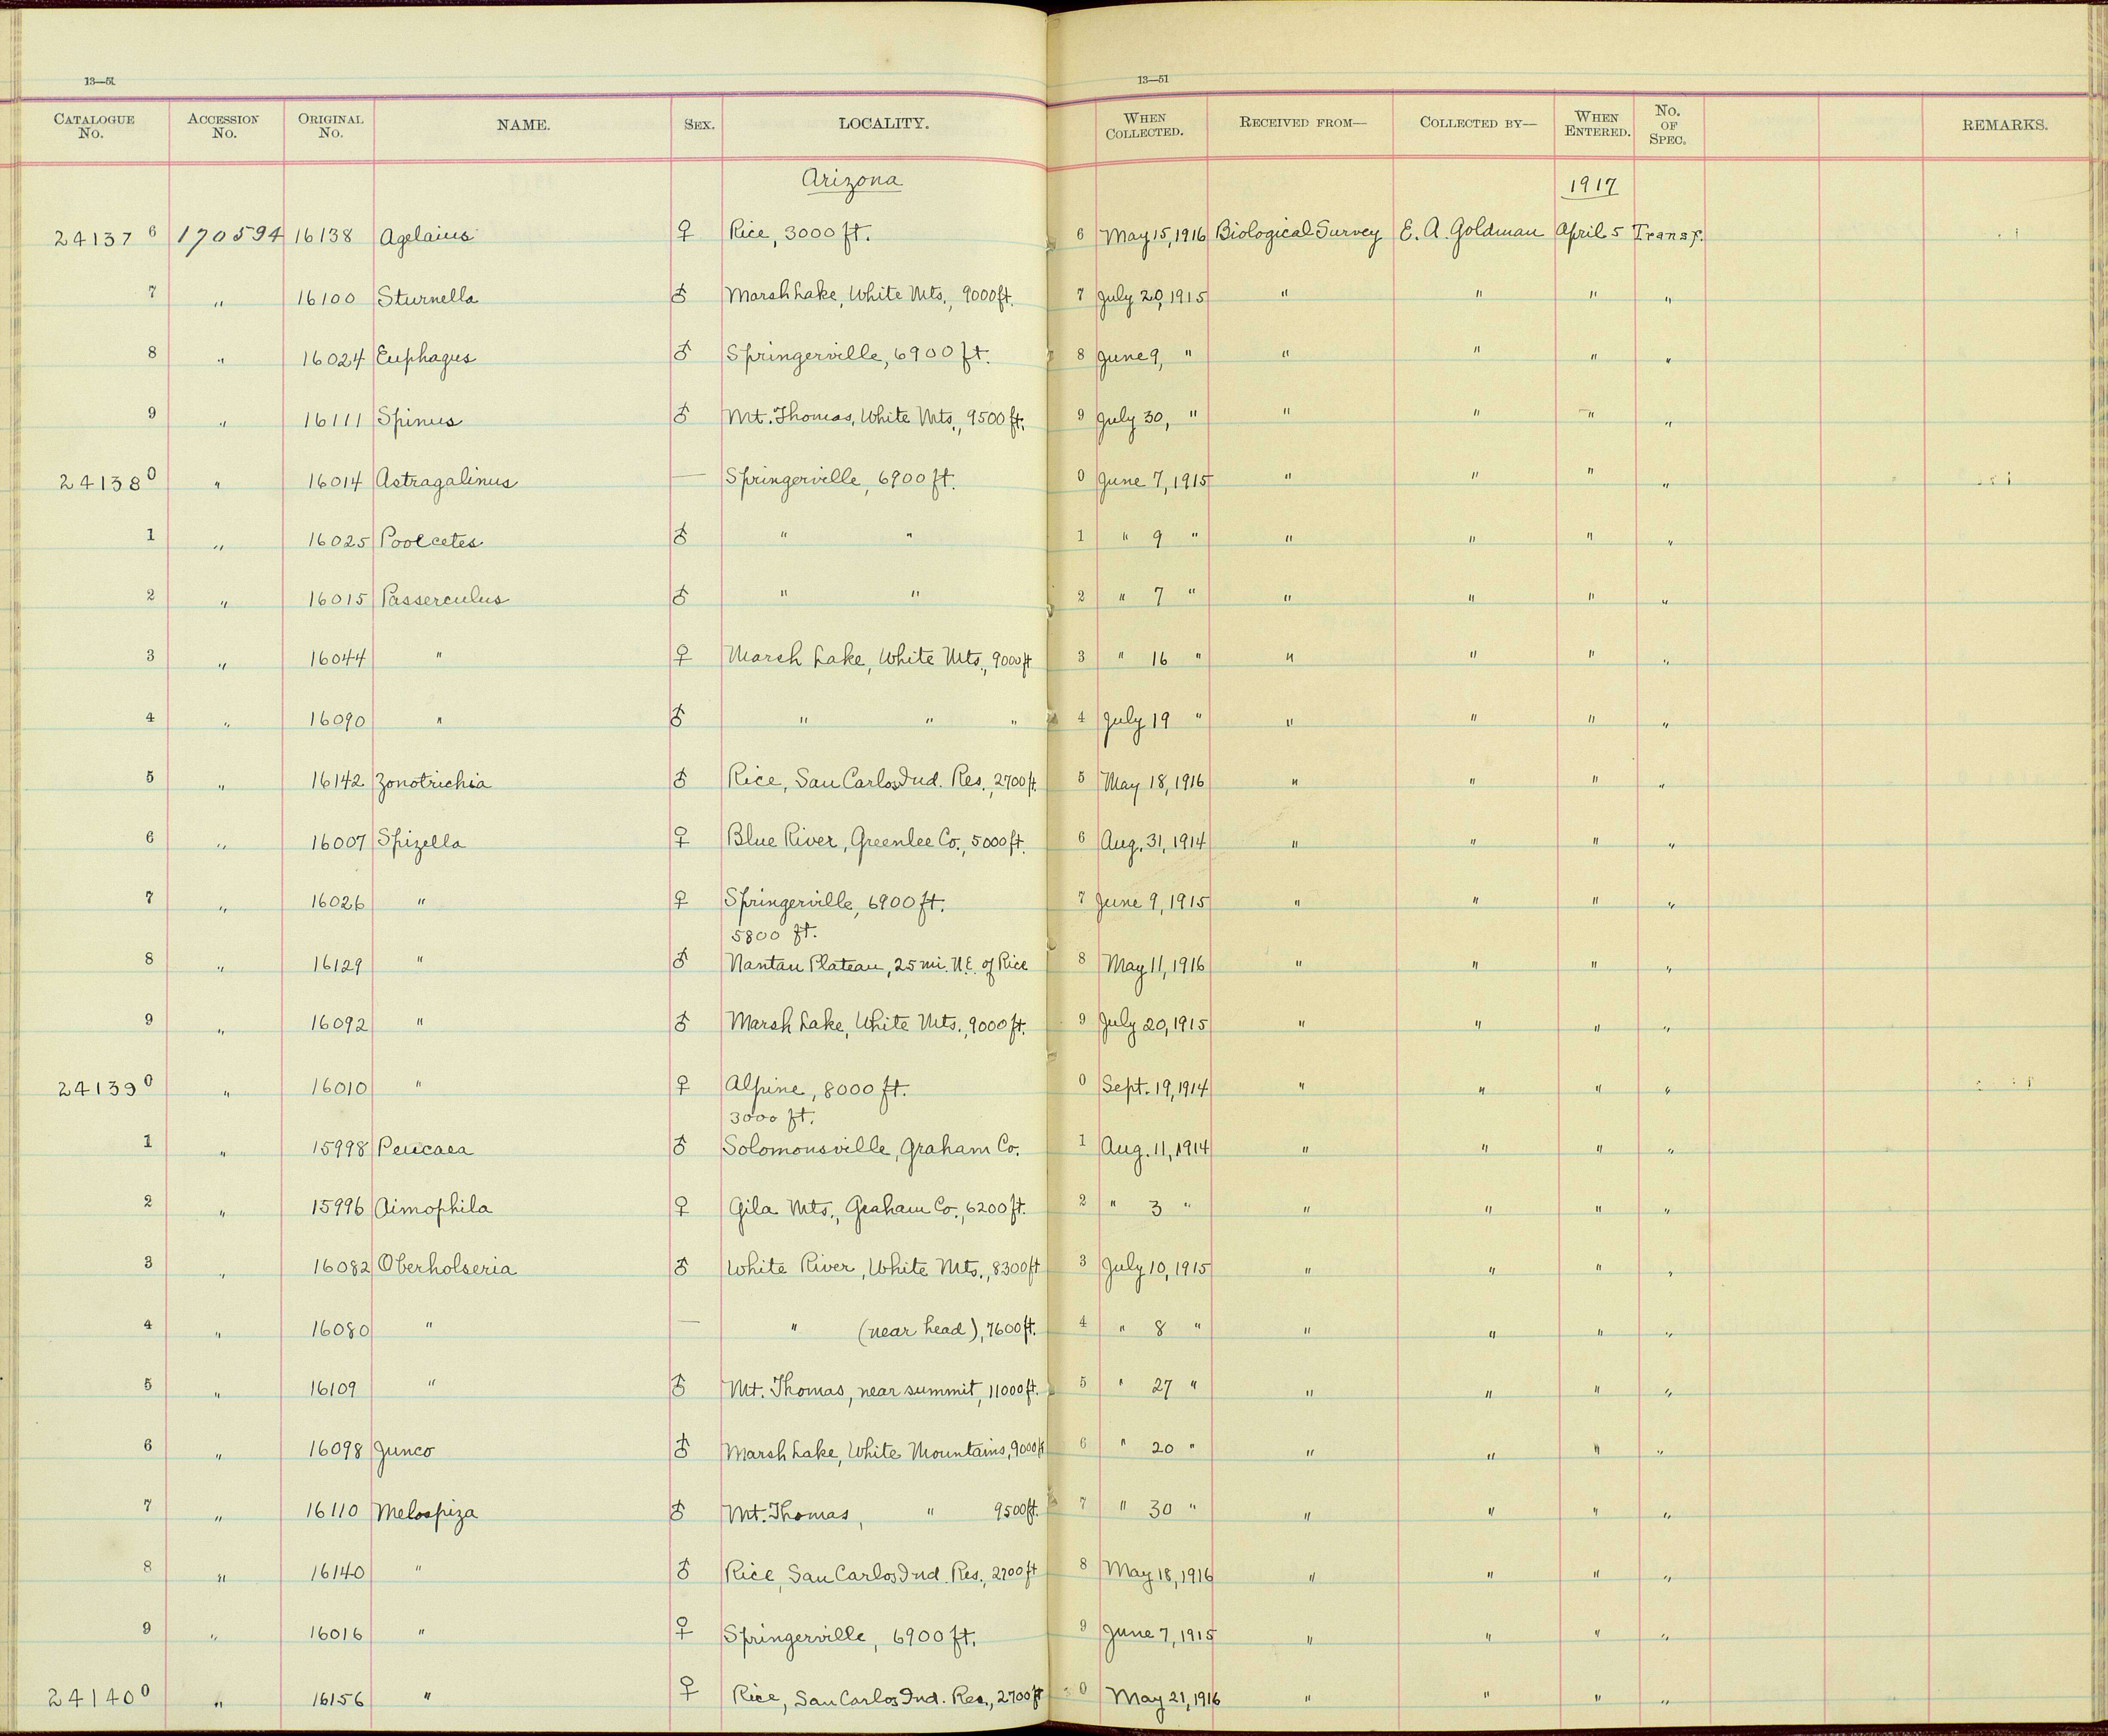 13—51 13—51
CATALOGUE No. ACCESSION No. ORIGINAL No. NAME. SEX. LOCALITY. WHEN COLLECTED. RECEIVED FROM— COLLECTED BY— WHEN ENTERED. No. OF SPEC. REMARKS.
Arizona 1917
24137 6 170594 16138 Agelaius ♀ Rice, 3000 ft. 6 May 15, 1916 Biological Survey E. A. Goldman April 5 Transf.
7 " 16100 Sturnella ♂ Marsh Lake, White Mts., 9000 ft. 7 July 20, 1915 " " " "
8 " 16024 Euphagus ♂ Springerville, 6900 ft. 8 June 9, " " " " "
9 " 16111 Spinus ♂ Mt. Thomas, White Mts., 9500 ft. 9 July 30, " " " " "
24138 0 " 16014 Astragalinus — Springerville, 6900 ft. 0 June 7, 1915 " " " "
1 " 16025 Pooecetes ♂ " " 1 " 9 " " " " "
2 " 16015 Passerculus ♂ " " 2 " 7 " " " " "
3 " 16044 " ♀ Marsh Lake, White Mts., 9000 ft 3 " 16 " " " " "
4 " 16090 " ♂ " " " 4 July 19 " " " " "
5 " 16142 Zonotrichia ♂ Rice, San Carlos Ind. Res., 2700 ft. 5 May 18, 1916 " " " "
6 " 16007 Spizella ♀ Blue River, Greenlee Co., 5000 ft. 6 Aug. 31, 1914 " " " "
7 " 16026 " ♀ Springerville, 6900 ft. 7 June 9, 1915 " " " "
5800 ft.
8 " 16129 " ♂ Nantan Plateau, 25 mi. N.E. of Rice 8 May 11, 1916 " " " "
9 " 16092 " ♂ Marsh Lake, White Mts., 9000 ft. 9 July 20, 1915 " " " "
24139 0 " 16010 " ♀ Alpine, 8000 ft. 0 Sept. 19, 1914 " " " "
3000 ft.
1 " 15998 Peucaea ♂ Solomonsville, Graham Co. 1 Aug. 11, 1914 " " " "
2 " 15996 Aimophila ♀ Gila Mts., Graham Co., 6200 ft. 2 " 3 " " " " "
3 " 16082 Oberholseria ♂ White River, White Mts., 8300 ft 3 July 10, 1915 " " " "
4 " 16080 " — " (near head), 7600 ft. 4 " 8 " " " " "
5 " 16109 " ♂ Mt. Thomas, near summit, 11000 ft. 5 " 27 " " " " "
6 " 16098 Junco ♂ Marsh Lake, White Mountains, 9000 ft 6 " 20 " " " " "
7 " 16110 Melospiza ♂ Mt. Thomas, " 9500 ft. 7 " 30 " " " " "
8 " 16140 " ♂ Rice, San Carlos Ind. Res., 2700 ft 8 May 18, 1916 " " " "
9 " 16016 " ♀ Springerville, 6900 ft. 9 June 7, 1915 " " " "
24140 0 " 16156 " ♀ Rice, San Carlos Ind. Res., 2700 ft 0 May 21, 1916 " " " "